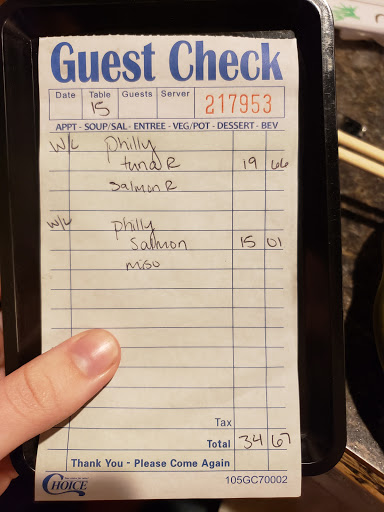 Guest Check
Date Table Guests Server 217953
15
APPT - SOUP/SAL - ENTREE - VEG/POT - DESSERT - BEV
W/L philly
tuna R 19 66
Salmon R
W/L philly
Salmon 15 01
miso
Tax
Total 34 67
Thank You - Please Come Again
CHOICE 105GC70002